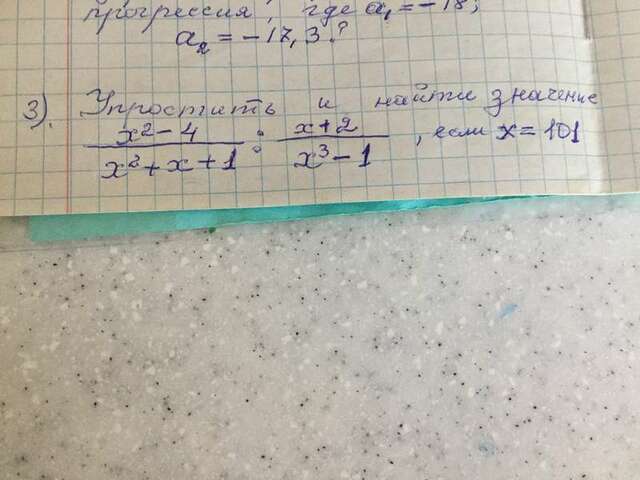 прогрессия, где a₁ = -18;
a₂ = -17,3?
3). Упростить и найти значение
x²-4 / x²+x+1 : x+2 / x³-1 , если x = 101